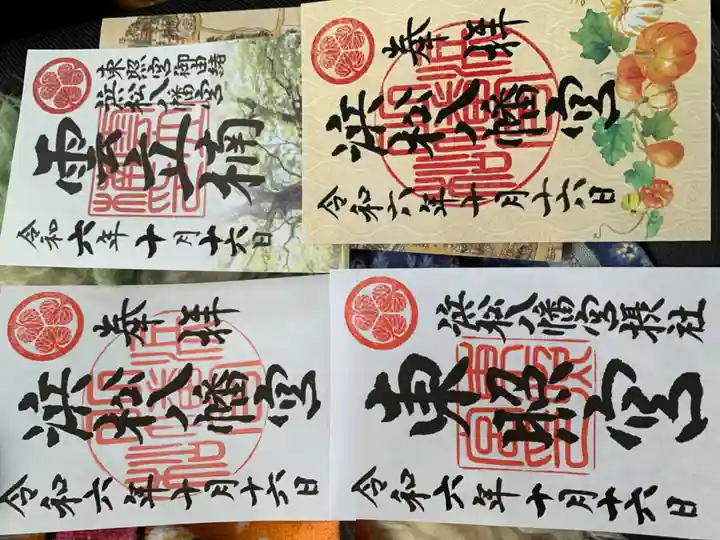 東照宮御由緒
浜松八幡宮
雲立楠
令和六年十月十六日
奉拝
浜松八幡宮
令和六年十月十六日
奉拝
浜松八幡宮
令和六年十月十六日
浜松八幡宮摂社
東照宮
令和六年十月十六日